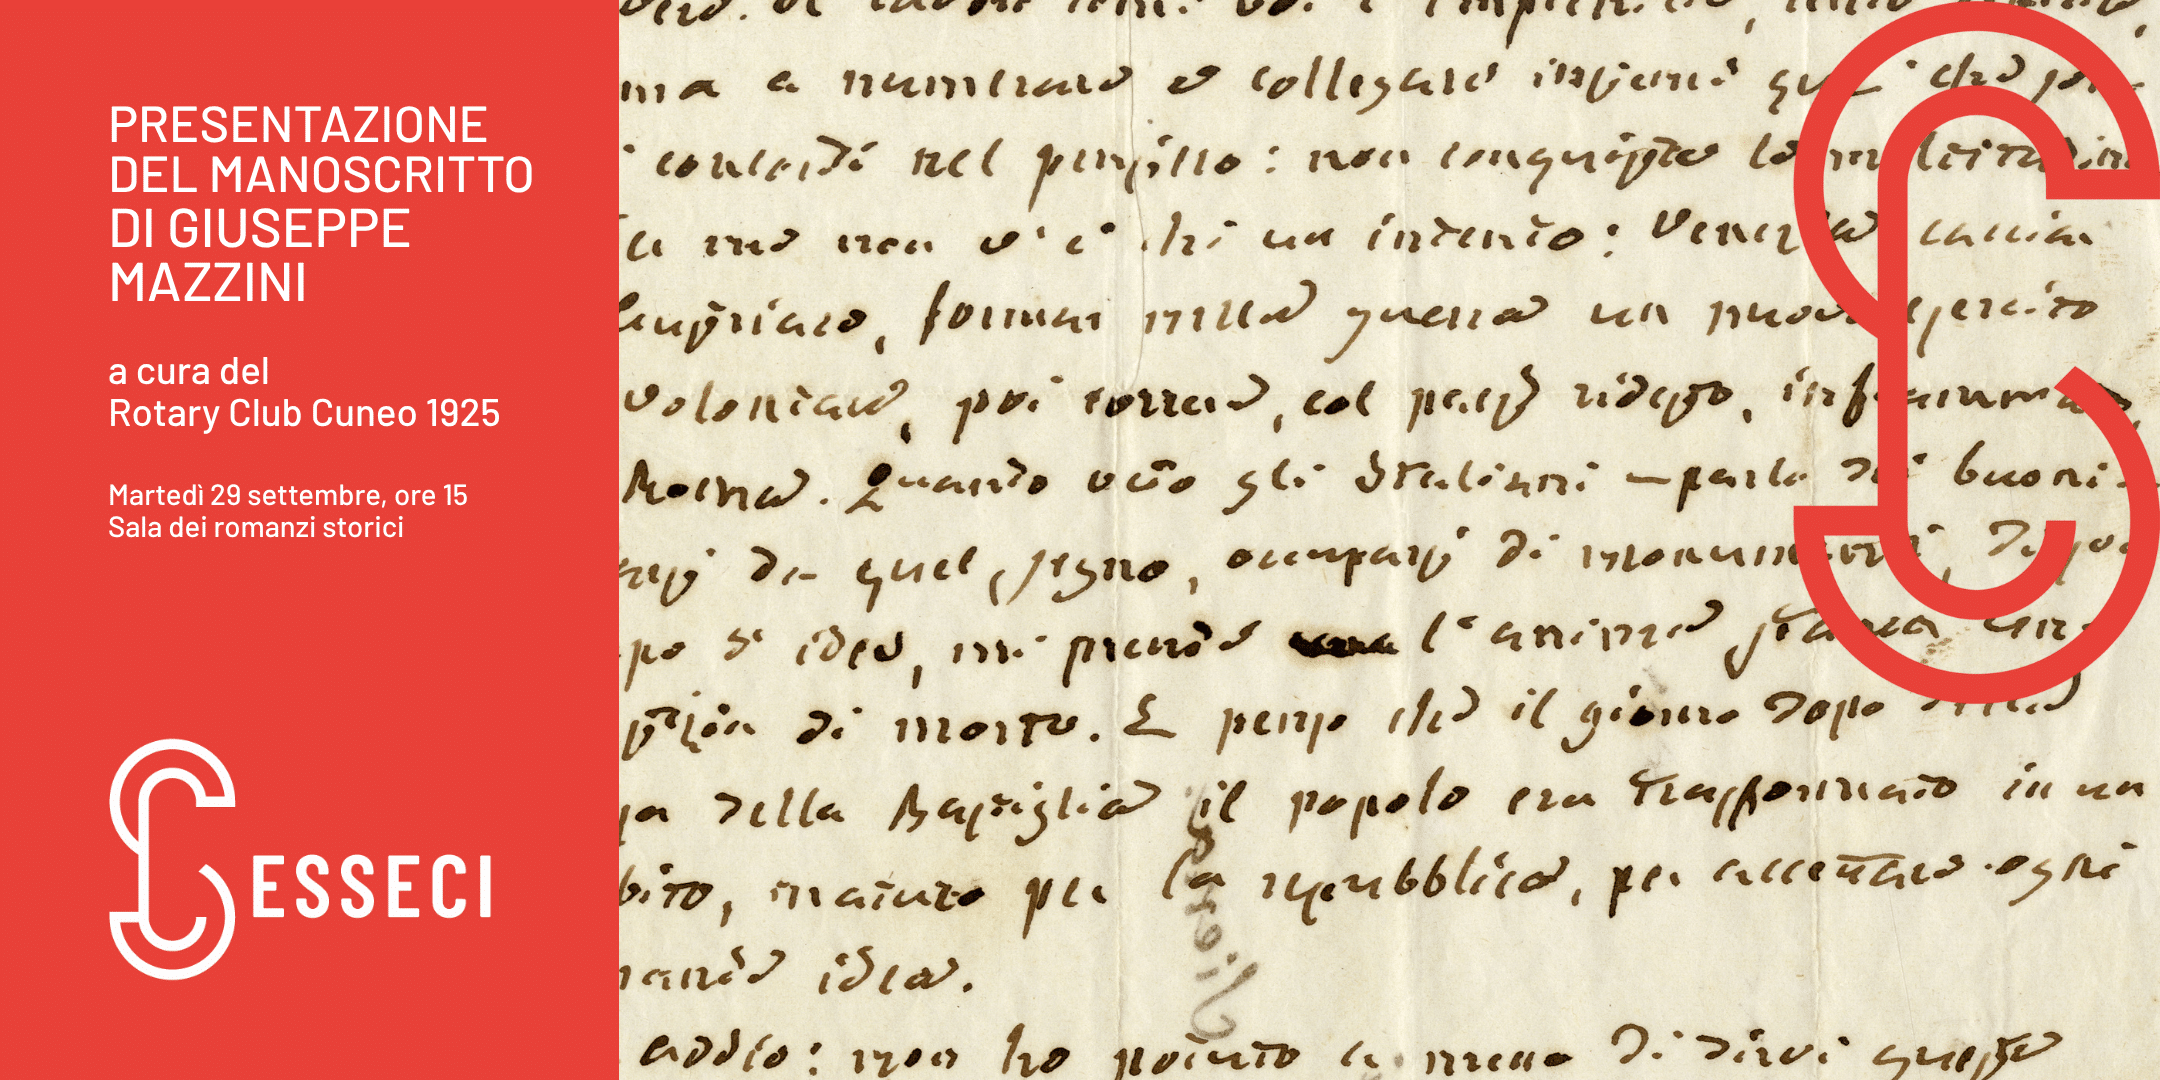 PRESENTAZIONE
DEL MANOSCRITTO
DI GIUSEPPE
MAZZINI
a cura del
Rotary Club Cuneo 1925
Martedì 29 settembre, ore 15
Sala dei romanzi storici
ESSECI
ma a numerare e collegare insieme que' che
concordi nel pensiero: non conquistare la moltitudine
me non v'è che un intento: Venezia cacciar
l'austriaco, formar nella guerra un nuovo esercito
volontario, poi correre, col paese ridesto, infiammato,
Roma. Quando vedo gli Italiani – parlo dei buoni –
da quel segno, occuparsi di monumenti, di
po' d'idea, mi prende l'anima stanca un'
di morte. E penso che il giorno dopo della
della Bastiglia il popolo era trasformato in un
maturo per la repubblica, per accettare ogni
idea.
addio: non ho potuto a meno di dirvi queste